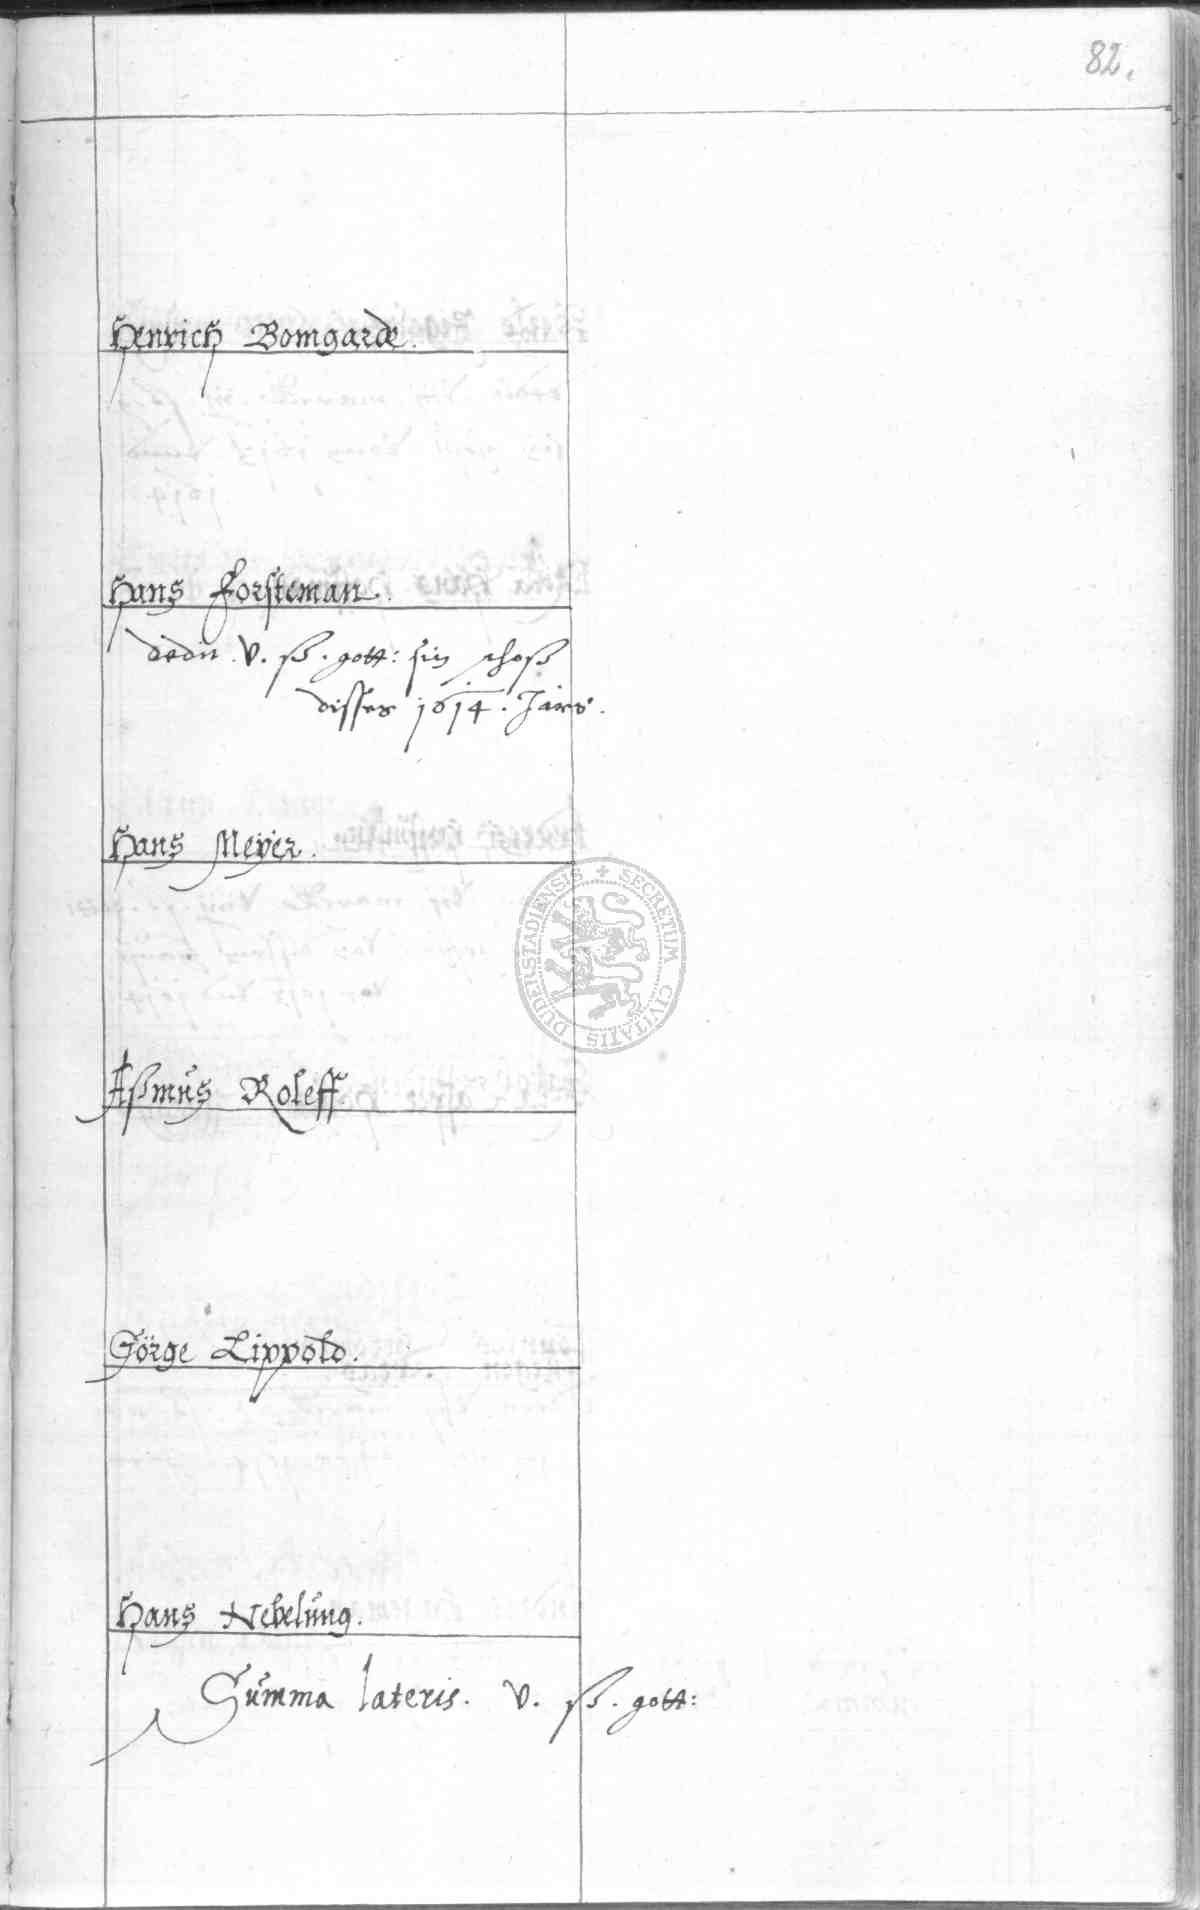 82.
Henrich Bomgarde.
Hans Forsteman.
dedit v. ß. gott: sin schoß
disses 1614. Jars.
Hans Meyer.
DUDERSTADIENSIS + SECRETUM CIVITATIS
Aßmus Roleff.
Görge Lippold.
Hans Nebelung.
Summa lateris. v. ß. gott: